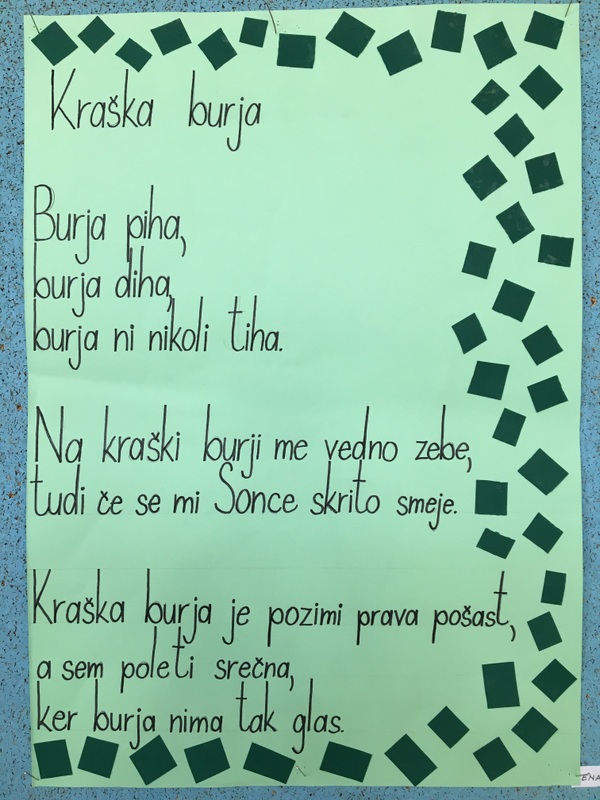 Kraška burja
Burja piha,
burja diha,
burja ni nikoli tiha.
Na kraški burji me vedno zebe,
tudi če se mi Sonce skrito smeje.
Kraška burja je pozimi prava pošast,
a sem poleti srečna,
ker burja nima tak glas.
ENA